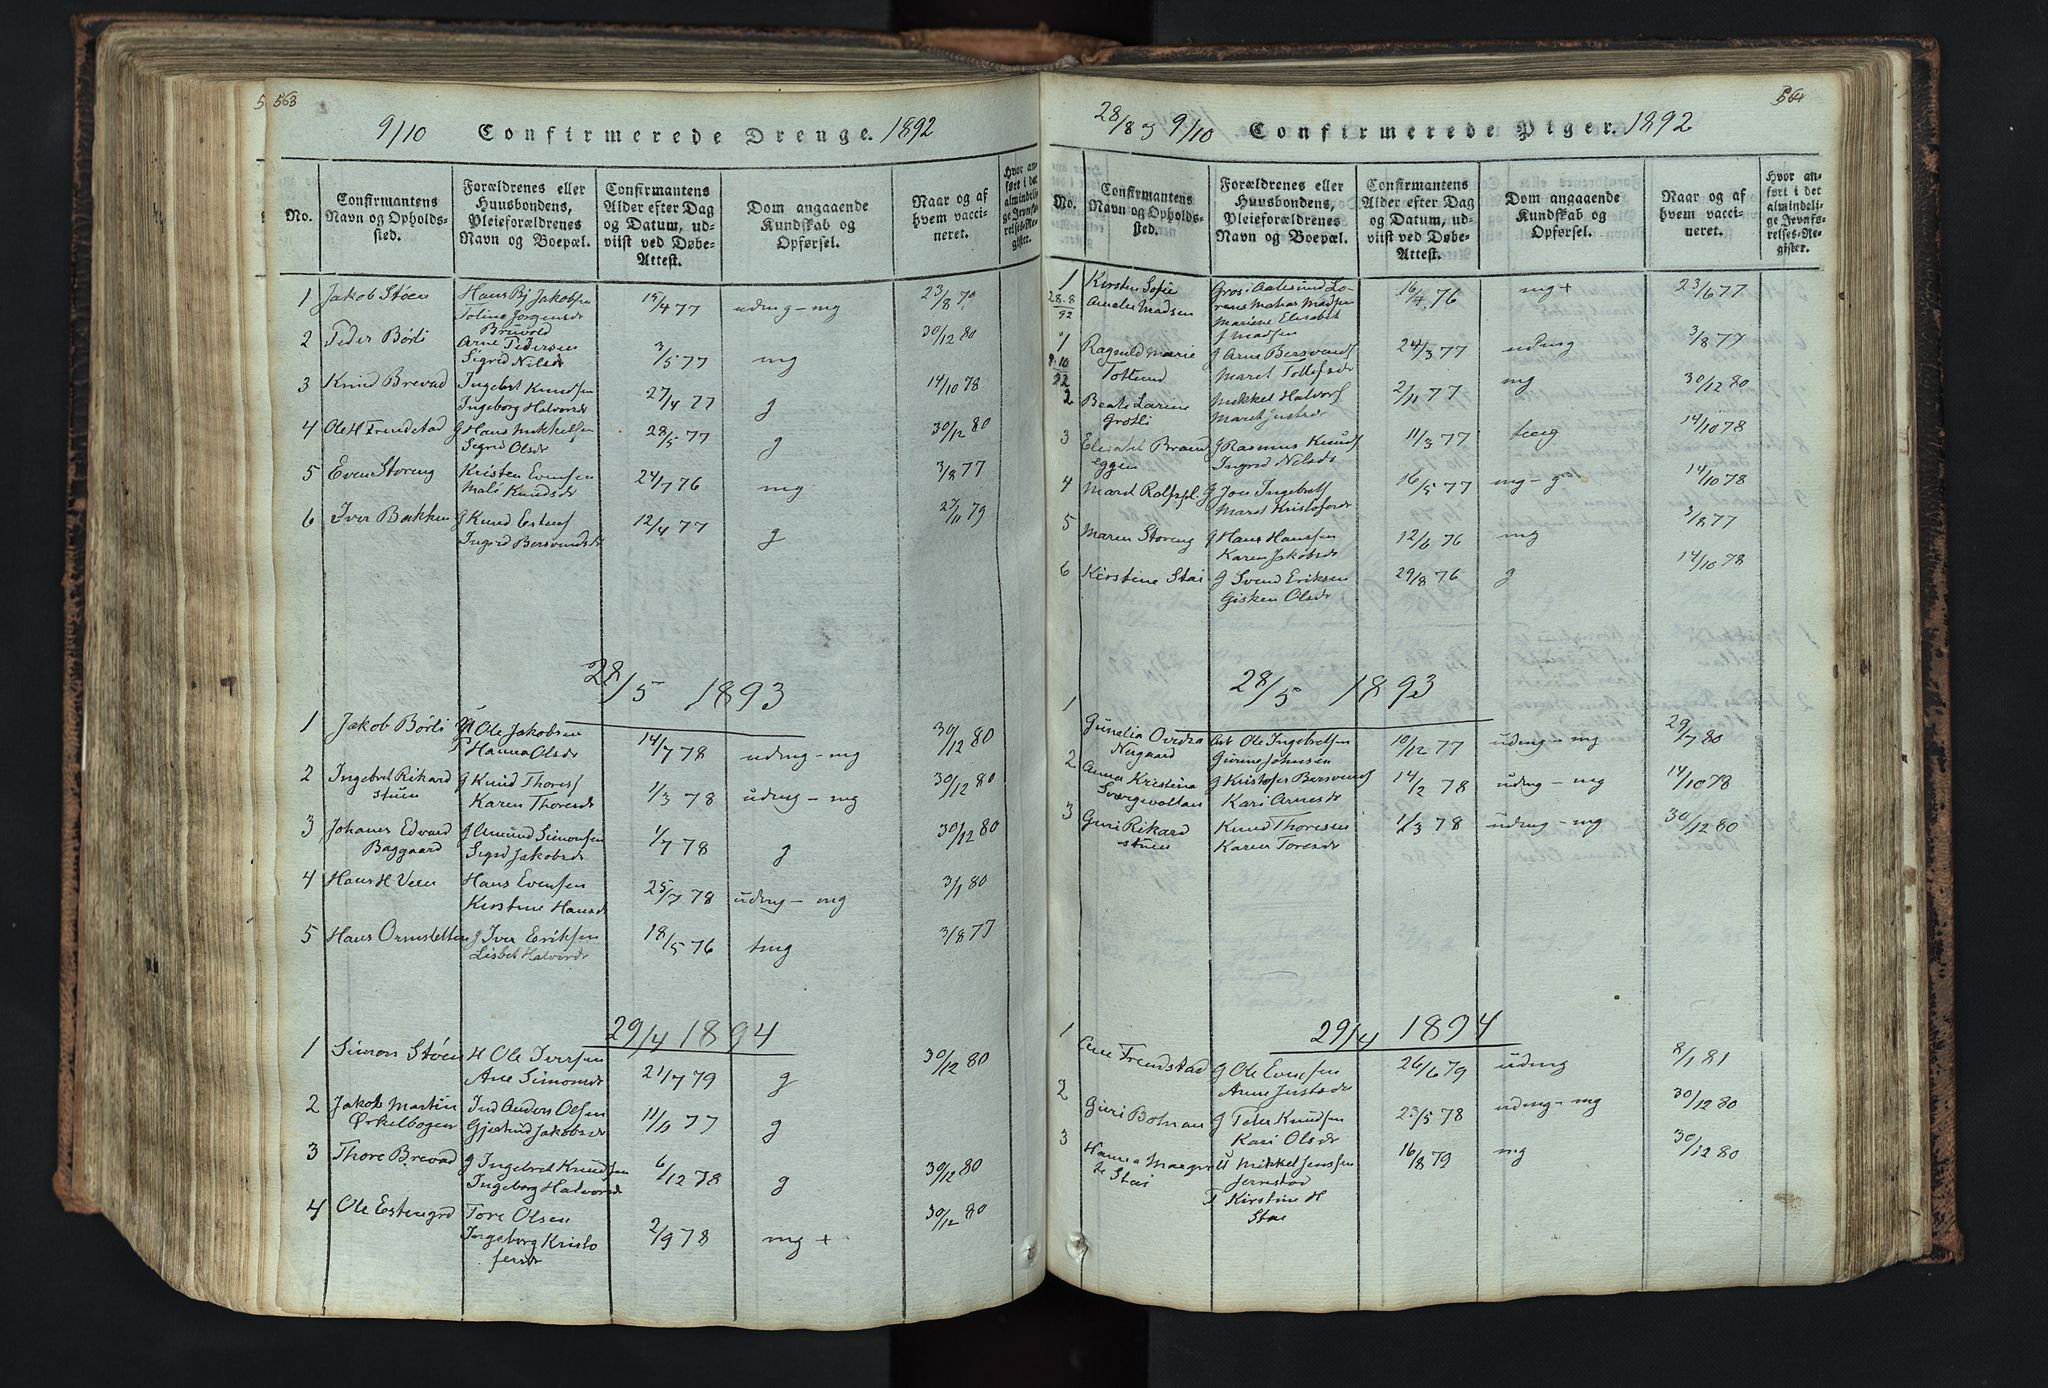 563
9/10 Confirmerede Drenge. 1892
No.
Confirmantens
Navn og Opholds-
sted.
Forældrenes eller
Huusbondens,
Pleieforældrenes
Navn og Boepæl.
Confirmantens
Alder efter Dag
og Datum, ud-
viist ved Døbe-
Attest.
Dom angaaende
Kundskab og
Opførsel.
Naar og af
hvem vacci-
neret.
Hvor an-
ført i det
almindeli-
ge Jevnfø-
relses-Re-
gister.
1 Jakob Støen Hans Bj Jakobsen 15/4 77 udmg - mg 23/8 70
Toline Jørgensdr
Bruvold
2 Peder Børli Arne Pedersen 3/5 77 mg 30/12 80
Sigrid Nilsdr
3 Knud Brevad Ingebret Knudsen 27/4 77 g 14/10 78
Ingeborg Halvorsdr
4 Ole H Trondstad G Hans Mikkelsen 28/5 77 g 30/12 80
Sigrid Olsdr
5 Even Storeng Kristen Evensen 24/7 76 mg 3/8 77
Mali Knudsdr
6 Iver Bakken G Knud Estensf 12/4 77 g 27/11 79
Ingrid Bersvendsdr
28/5 1893
1 Jakob Børli U Ole Jakobsen 14/7 78 udmg - mg 30/12 80
P Hanna Olsdr
2 Ingebret Rikard G Knud Thoresf 1/3 78 udmg - mg 30/12 80
stuen Karen Thoresdr
3 Johanes Edvard G Amund Simonsen 1/7 78 g 30/12 80
Baggaard Sigrd Jakobsdr
4 Hans H Veen Hans Evensen 25/7 78 udmg - mg 3/1 80
Kirstine Hansdr
5 Hans Ormsletten G Iver Eriksen 18/5 76 tmg 3/8 77
Lisbet Halvordr
29/4 1894
1 Simon Støen H Ole Iversen 21/7 79 g 30/12 80
Ane Simonsdr
2 Jakob Martin Ind Anders Olsen 11/11 77 g
Ørkelbogen Gjertrud Jakobsdr
3 Thore Brevad G Ingebret Knudsen 6/12 78 g 30/12 80
Ingeborg Halvorsdr
4 Ole Estengrd Tore Olsen 2/9 78 mg + 30/12 80
Ingeborg Kristo
fersdr
564
28/8 og 9/10 Confirmerede Piger. 1892
No.
Confirmantens
Navn og Opholds-
sted.
Forældrenes eller
Huusbondens,
Pleieforældrenes
Navn og Boepæl.
Confirmantens
Alder efter Dag
og Datum, ud-
viist ved Døbe-
Attest.
Dom angaaende
Kundskab og
Opførsel.
Naar og af
hvem vacci-
neret.
Hvor an-
ført i det
almindeli-
ge Jevnfø-
relses-Re-
gister.
1 Kirsten Sofie Gros i Aalesund Lo- 16/4 76 mg + 23/6 77
28.8/92 Amalie Madsen Madsen
Mariane Elisabet
f Madsen
1 Ragnild Marie G Arne Bersvendsf 24/3 77 udmg 3/8 77
9.10/92 Totlund Maret Tollefsdr
2 Beate Larine Mikkel Halvorsf 2/11 77 mg 30/12 80
Grøtli Maret Justsdr
3 Elisabet Brænd G Rasmus Knudsf 11/3 77 14/10 78
eggen Ingrid Nilsdr
4 Marit Rolfspl. G Jon Ingebretsf 16/5 77 mg - g 14/10 78
Maret Kristofersdr
5 Maren Storeng G Hans Hanssen 12/6 76 mg 3/8 77
Karen Jakobsdr
6 Kirstine Stai G Svend Eriksen 29/8 76 g 14/10 78
Gisken Olsdr
28/5 1893
1 Gunelia Ovidia Arb Ole Ingebretsen 10/12 77 udmg - mg 29/7 80
Nergaard Gurine Johnsen
2 Anna Kristina G Kristofer Bersvendsf 14/2 78 udmg - mg 14/10 78
Svergevoltan Kari Arnesdr
3 Guri Rikard Knud Thoresen 1/3 78 udmg - mg 30/12 80
stuen Karen Toresdr
29/4 1894
1 Ane Trondstad G Ole Evensen 26/6 79 udmg 8/1 81
Anne Justsdr
2 Guri Bolman G Peter Knudsen 23/5 78 udmg - mg 30/12 80
Kari Olsdr
3 Hanna Margre U Mikkel Jenssen 16/8 79 mg 30/12 80
te Stai Jernstad
P Kirstine H
Stai